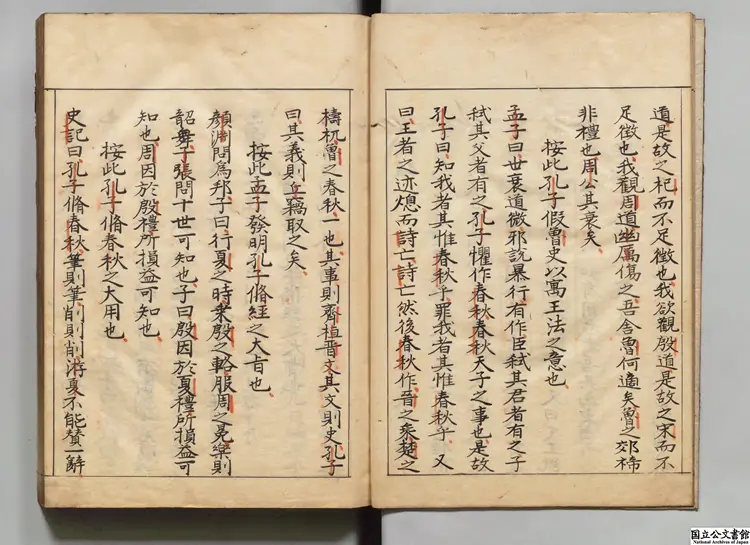 道是故之杞而不足徴也我欲觀殷道是故之宋而不
足徴也我觀周道幽厲傷之吾舎魯何適矣魯之郊禘
非禮也周公其衰矣
按此孔子假魯史以寓王法之意也
孟子曰世衰道微邪說暴行有作臣弑其君者有之子
弑其父者有之孔子懼作春秋春秋天子之事也是故
孔子曰知我者其惟春秋乎罪我者其惟春秋乎又
曰王者之迹熄而詩亡詩亡然後春秋作晋之乘楚之
檮杌魯之春秋一也其事則齊桓晋文其文則史孔子
曰其義則丘竊取之矣
按此孟子發明孔子脩經之大旨也
顔淵問爲邦子曰行夏之時乘殷之輅服周之冕樂則
韶舞子張問十世可知也子曰殷因於夏禮所損益可
知也周因於殷禮所損益可知也
按此孔子脩春秋之大用也
史記曰孔子脩春秋筆則筆削則削游夏不能賛一辞
国立公文書館
National Archives of Japan